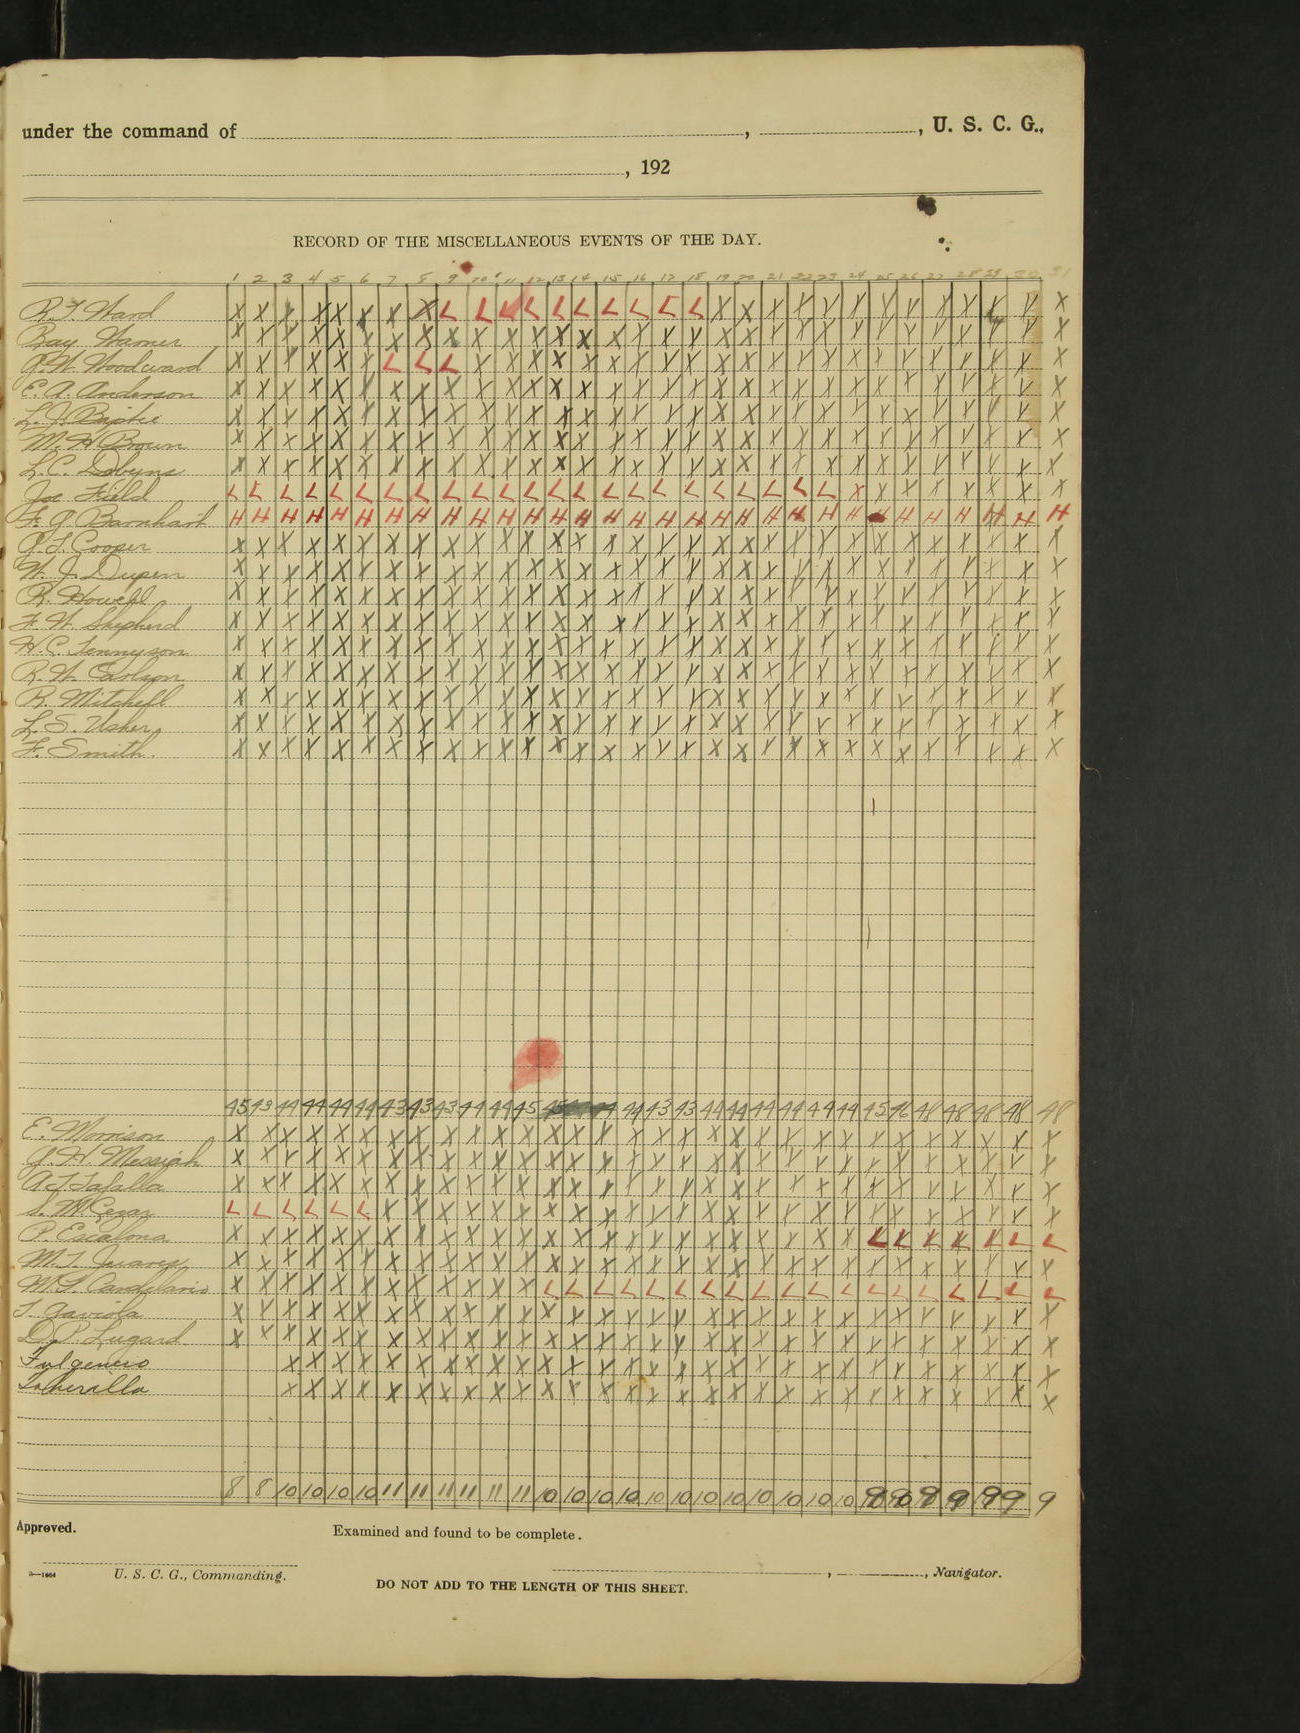 under the command of , , U. S. C. G.,
, 192
RECORD OF THE MISCELLANEOUS EVENTS OF THE DAY.
1 2 3 4 5 6 7 8 9 10 11 12 13 14 15 16 17 18 19 20 21 22 23 24 25 26 27 28 29 30 31
Ward X X X X X X X X L L L L L L L L L L X X X X X X X X X X X X X
Ray Warner X X X X X X X X X X X X X X X X X X X X X X X X X X X X X X X
Woodward X X X X X X L L L X X X X X X X X X X X X X X X X X X X X X X
E. A. Anderson X X X X X X X X X X X X X X X X X X X X X X X X X X X X X X X
L. J. X X X X X X X X X X X X X X X X X X X X X X X X X X X X X X X
M. H. Bown X X X X X X X X X X X X X X X X X X X X X X X X X X X X X X X
L. C. Dobyns X X X X X X X X X X X X X X X X X X X X X X X X X X X X X X X
Joe Field L L L L L L L L L L L L L L L L L L L L L L L X X X X X X X X
F. G. Barnhart H H H H H H H H H H H H H H H H H H H H H H H H H H H H H H H
Cooper X X X X X X X X X X X X X X X X X X X X X X X X X X X X X X X
W. J. Dupern X X X X X X X X X X X X X X X X X X X X X X X X X X X X X X X
R. Howell X X X X X X X X X X X X X X X X X X X X X X X X X X X X X X X
F. W. Shepherd X X X X X X X X X X X X X X X X X X X X X X X X X X X X X X X
H. C. Tennyson X X X X X X X X X X X X X X X X X X X X X X X X X X X X X X X
R. W. Carlson X X X X X X X X X X X X X X X X X X X X X X X X X X X X X X X
R. Mitchell X X X X X X X X X X X X X X X X X X X X X X X X X X X X X X X
L. S. Usher X X X X X X X X X X X X X X X X X X X X X X X X X X X X X X X
F. Smith. X X X X X X X X X X X X X X X X X X X X X X X X X X X X X X X
45 43 44 44 44 44 43 43 43 44 44 45 45 44 44 43 43 44 44 44 44 44 44 45 46 48 48 48 48 48
E. Morrison X X X X X X X X X X X X X X X X X X X X X X X X X X X X X X X
G. H. Messiah X X X X X X X X X X X X X X X X X X X X X X X X X X X X X X X
A. T. Tafalla X X X X X X X X X X X X X X X X X X X X X X X X X X X X X X X
L L L L L L X X X X X X X X X X X X X X X X X X X X X X X X X
P. Escalona X X X X X X X X X X X X X X X X X X X X X X X X L L L L L L L
M. T. Juarez X X X X X X X X X X X X X X X X X X X X X X X X X X X X X X X
M. S. Candelario X X X X X X X X X X X X L L L L L L L L L L L L L L L L L L L
T. Gaviola X X X X X X X X X X X X X X X X X X X X X X X X X X X X X X X
D. P. Lugard X X X X X X X X X X X X X X X X X X X X X X X X X X X X X X X
Fulgencio X X X X X X X X X X X X X X X X X X X X X X X X X X X X X
X X X X X X X X X X X X X X X X X X X X X X X X X X X X X
8 8 10 10 10 10 11 11 11 11 11 11 10 10 10 10 10 10 10 10 10 10 10 10 9 9 9 9 9 9 9
Approved.
Examined and found to be complete.
U. S. C. G., Commanding.
, , Navigator.
DO NOT ADD TO THE LENGTH OF THIS SHEET.